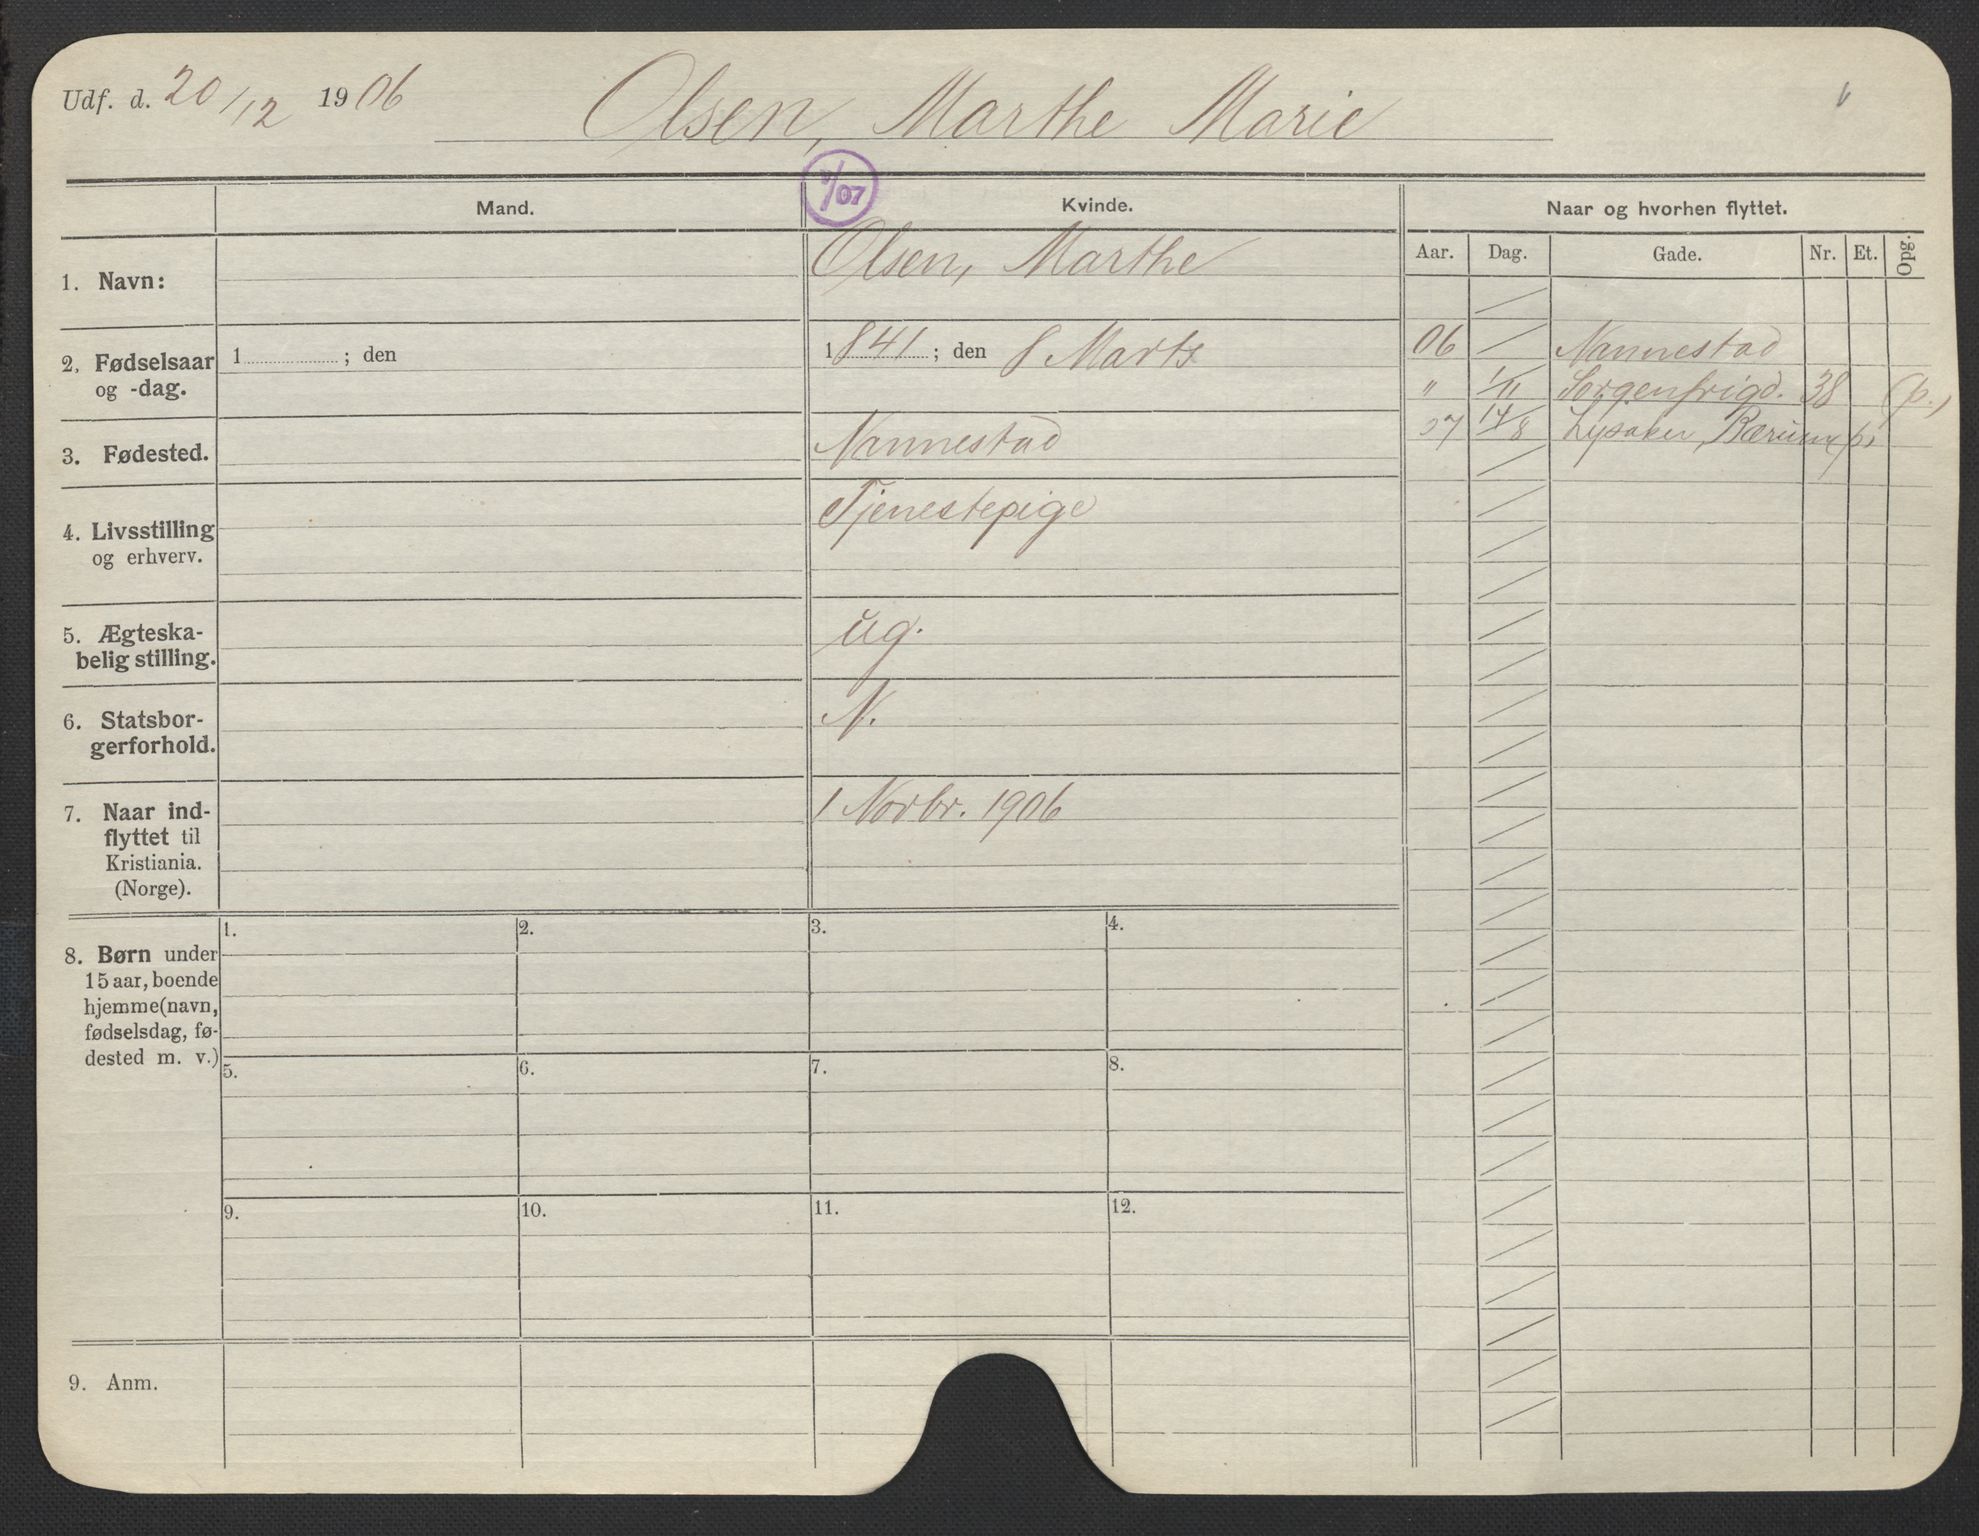 Udf. d. 20/12 1906 Olsen, Marthe Marie
/07
Mand. Kvinde. Naar og hvorhen flyttet.
Aar. Dag. Gade. Nr. Et. Opg.
1. Navn: Olsen, Marthe
2, Fødselsaar og -dag.
1 ; den
1841 ; den 8 Marts
3. Fødested. Nannestad
4. Livsstilling og erhverv. Tjenestepige
5. Ægteska-
belig stilling. ug.
6. Statsbor-
gerforhold. N.
7. Naar ind-
flyttet til
Kristiania.
(Norge).
1 Novbr. 1906
06 Nannestad
" 1/11 Sorgenfrigd. 38 (p.)
07 14/8 Lysaker, Bærum p.
8. Børn under
15 aar, boende
hjemme (navn,
fødselsdag, fø-
dested m. v.)
1. 2. 3. 4.
5. 6. 7. 8.
9. 10. 11. 12.
9. Anm.